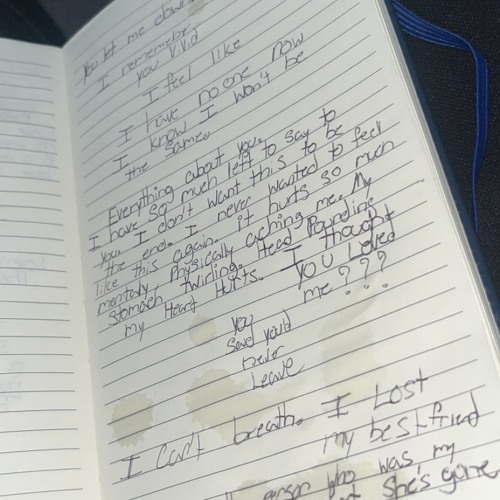 You let me down
I remember
you vivid
I feel like
I have no one now
I know I won't be
the same.
Everything about you.
I have so much left to say to
you I don't want this to be
the end. I never wanted to feel
like this again. it hurts so much
mentaly, Physically aching me. My
Stomach Twiding. Head Pounding
my Heart Hurts. I thought
YOU Loved
me???
you
Said you'd
never
Leave
I Can't breath. I Lost
my best friend
person who was, my
she's gone